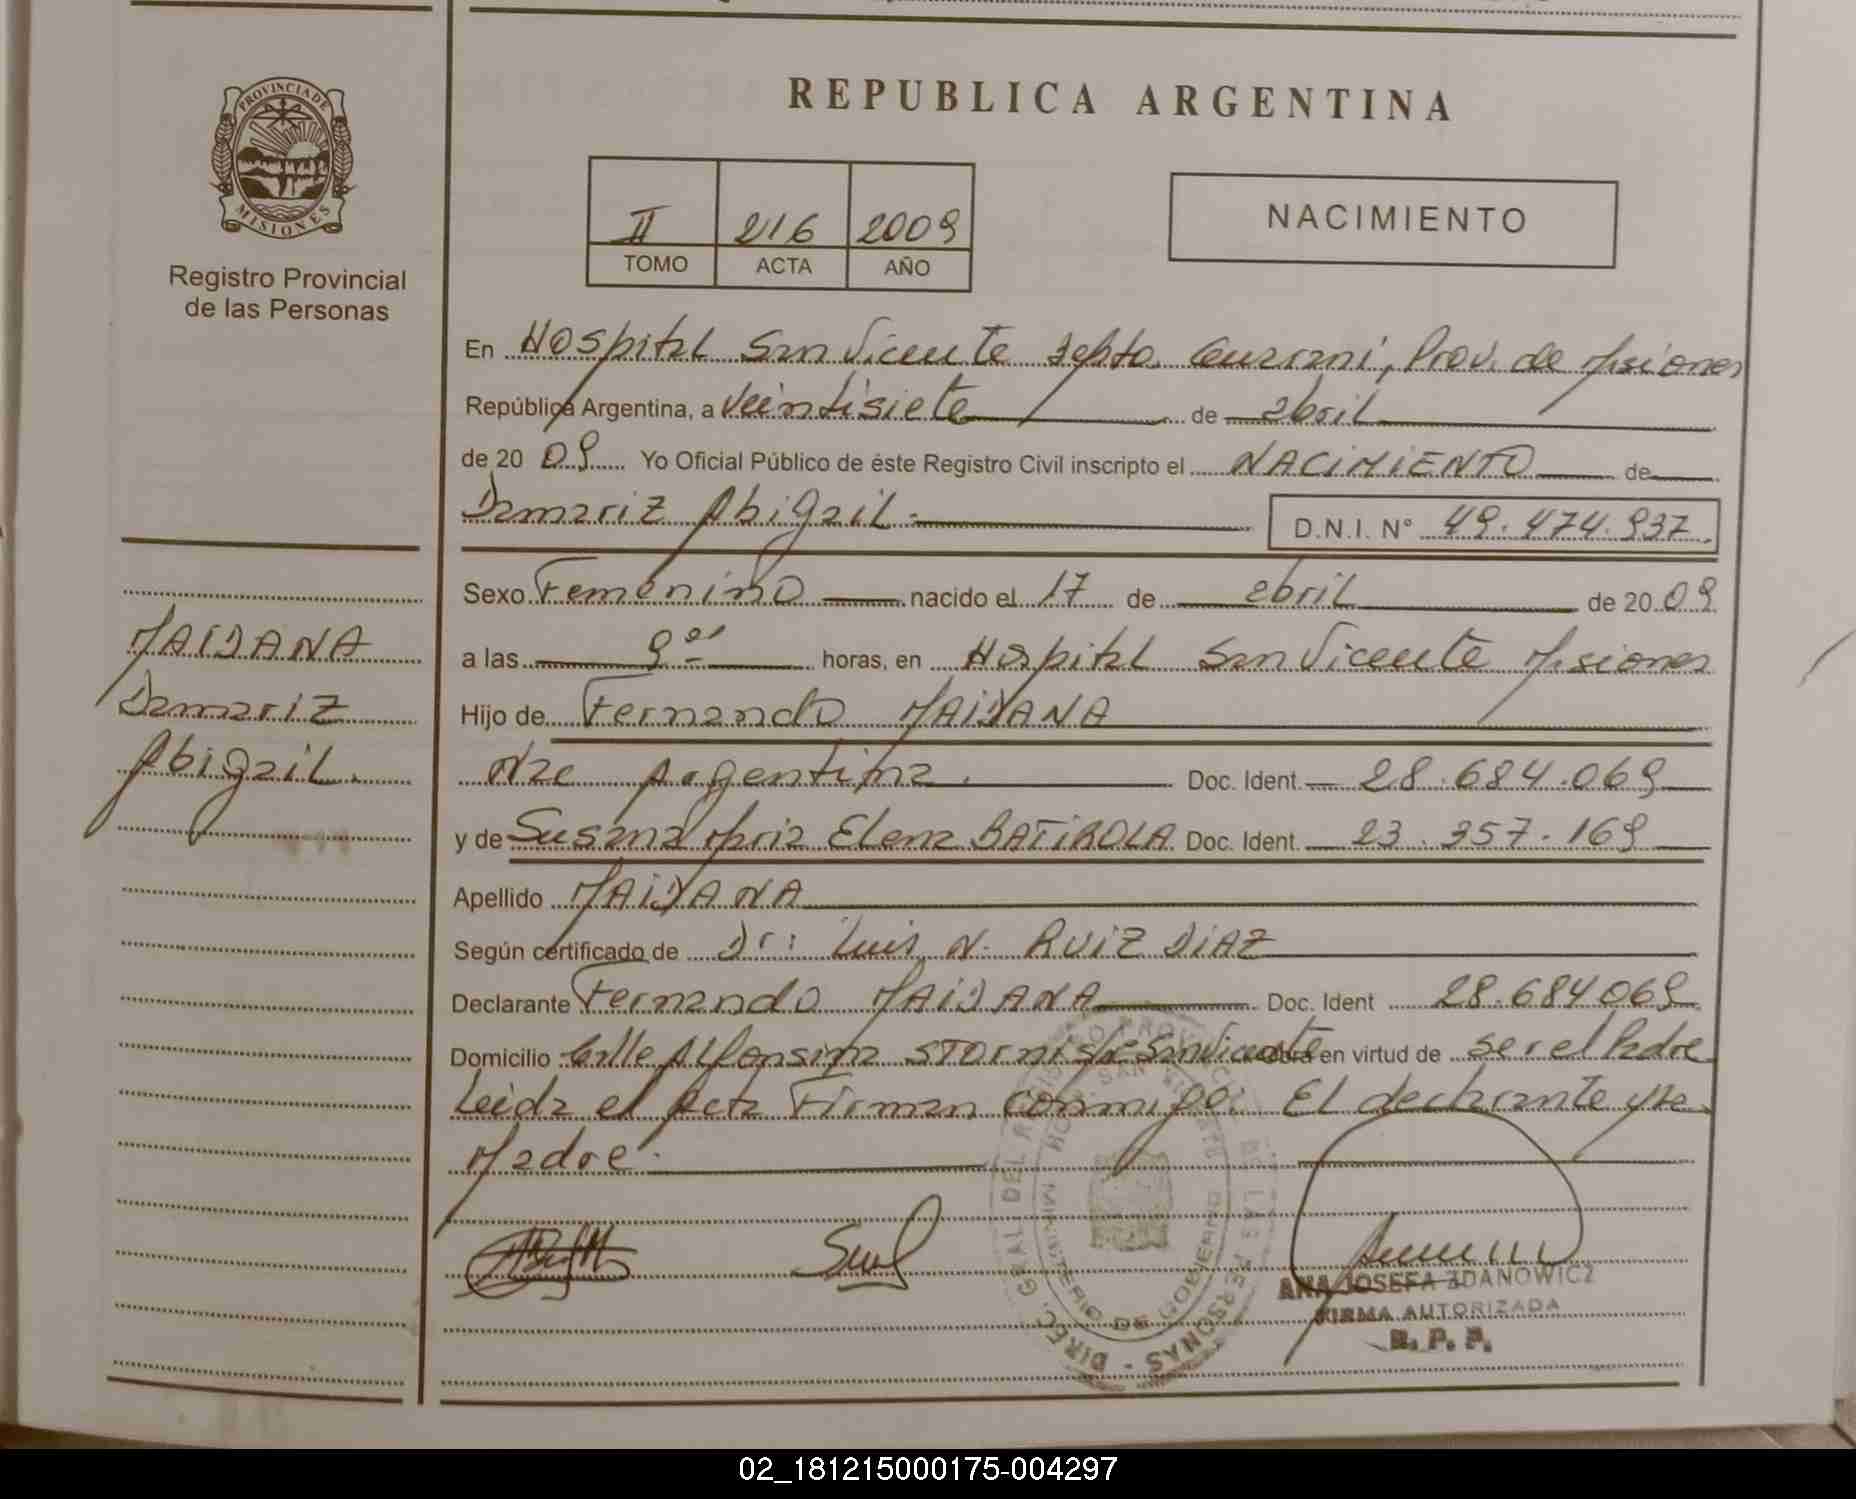 REPUBLICA ARGENTINA
PROVINCIA DE
MISIONES
Registro Provincial
de las Personas
II 216 2009
TOMO ACTA AÑO
NACIMIENTO
En Hospital San Vicente Depto. Guarani, Prov. de Misiones
República Argentina, a Veintisiete de abril
de 20 09 Yo Oficial Público de éste Registro Civil inscripto el NACIMIENTO de
Damariz Abigail.
D.N.I. N° 49.474.937.
Sexo Femenino nacido el 17 de abril de 20 09
a las 9 horas, en Hospital San Vicente Misiones
Hijo de Fernando MAIDANA
Nac Argentina. Doc. Ident. 28.684.069
y de Susana Maria Elena BATIROLA Doc. Ident. 23.357.169
Apellido MAIDANA
Según certificado de Dr: Luis N. RUIZ DIAZ
Declarante Fernando MAIDANA Doc. Ident 28.684069
Domicilio Calle Alfonsina STORNI de San Vicente Obra en virtud de ser el Padre
Leida el Acta Firman conmigo: El declarante y la
Madre.
MAIDANA
Damariz
Abigail.
ANA JOSEFA ZDANOWICZ
FIRMA AUTORIZADA
R. P. P.
DIREC. GRAL DEL REGISTRO PROVINCIAL DE LAS PERSONAS
MINISTERIO DE GOBIERNO
02_181215000175-004297